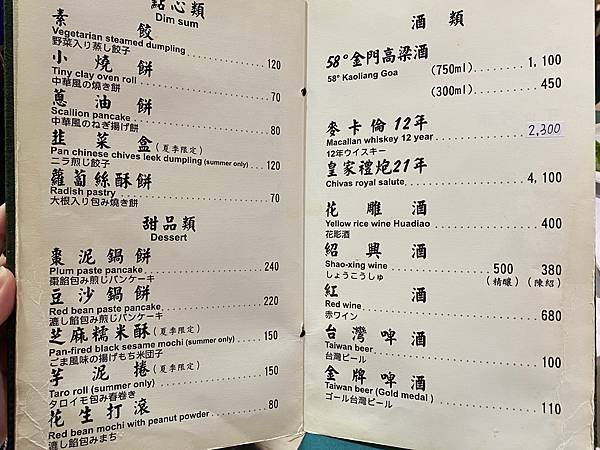 點心類
Dim sum
素餃
Vegetarian steamed dumpling 120
野菜入り蒸し餃子
小燒餅
Tiny clay oven roll 70
中華風の焼き餅
蔥油餅
Scallion pancake 80
中華風のねぎ揚げ餅
韭菜盒(夏季限定)
Pan chinese chives leek dumpling (summer only) 120
ニラ煎じ餃子
蘿蔔絲酥餅
Radish pastry 70
大根入り包み焼き餅
甜品類
Dessert
棗泥鍋餅
Plum paste pancake 240
棗餡包み煎じパンケーキ
豆沙鍋餅
Red bean paste pancake 220
漉し餡包み煎じパンケーキ
芝麻糯米酥(夏季限定)
Pan-fired black sesame mochi (summer only) 150
ごま風味の揚げもち米団子
芋泥捲(夏季限定)
Taro roll (summer only) 150
タロイモ包み春巻き
花生打滾
Red bean mochi with peanut powder 80
漉し餡包みまち
酒類
58°金門高梁酒
58° Kaoliang Goa (750ml) 1,100
(300ml) 450
麥卡倫12年
Macallan whiskey 12 year 2,300
12年ウイスキー
皇家禮炮21年
Chivas royal salute 4,100
花雕酒
Yellow rice wine Huadiao 400
花彫酒
紹興酒
Shao-xing wine 500 380
しょうこうしゅ (精釀) (陳紹)
紅酒
Red wine 680
赤ワイン
台灣啤酒
Taiwan beer 100
台灣ビール
金牌啤酒
Taiwan beer (Gold medal ) 110
ゴール台灣ビール